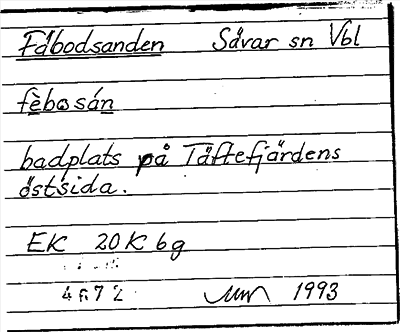 Fäbodsanden Sävar sn Vbl
fèbosán
badplats på Täftefjärdens
östsida.
EK 20K 6g
4672 1993